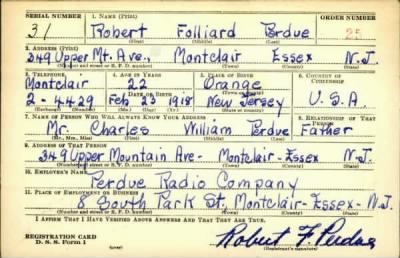 SERIAL NUMBER 1. NAME (Print) ORDER NUMBER
31 Robert Folliard Perdue 25
(First) (Middle) (Last)
2. ADDRESS (Print)
349 Upper Mt. Ave. Montclair Essex N.J.
(Number and street or R. F. D. number) (Town) (County) (State)
3. TELEPHONE 4. AGE IN YEARS 5. PLACE OF BIRTH 6. COUNTRY OF CITIZENSHIP
Montclair 22 Orange
DATE OF BIRTH (Town or county)
2-4429 Feb 23 1918 New Jersey U.S.A.
(Exchange) (Number) (Mo.) (Day) (Yr.) (State or country)
7. NAME OF PERSON WHO WILL ALWAYS KNOW YOUR ADDRESS 8. RELATIONSHIP OF THAT PERSON
Mr. Charles William Perdue Father
(Mr., Mrs., Miss) (First) (Middle) (Last)
9. ADDRESS OF THAT PERSON
349 Upper Mountain Ave- Montclair-Essex N.J.
(Number and street or R. F. D. number) (Town) (County) (State)
10. EMPLOYER'S NAME
Perdue Radio Company
11. PLACE OF EMPLOYMENT OR BUSINESS
8 South Park St. Montclair-Essex-N.J.
(Number and street or R. F. D. number) (Town) (County) (State)
I AFFIRM THAT I HAVE VERIFIED ABOVE ANSWERS AND THAT THEY ARE TRUE.
REGISTRATION CARD
D. S. S. Form 1 Robert F. Perdue
(Registrant's signature)